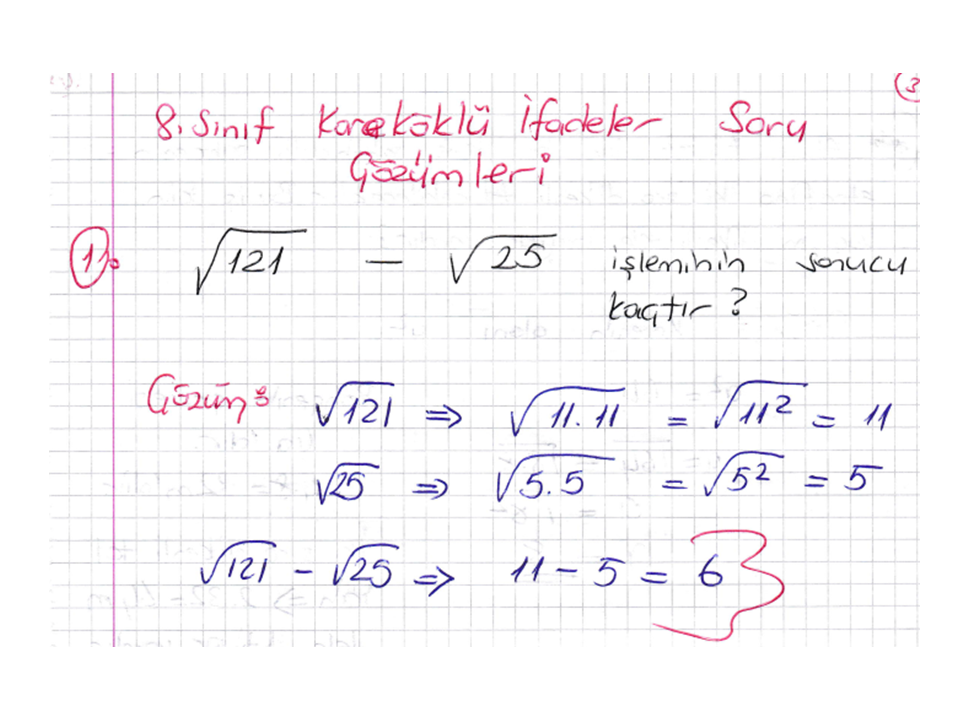 (3
8. Sınıf Kareköklü İfadeler Soru
Çözümleri
1). √121 − √25 işleminin sonucu
kaçtır?
Çözüm: √121 ⇒ √11.11 = √11² = 11
√25 ⇒ √5.5 = √5² = 5
√121 − √25 ⇒ 11 − 5 = 6